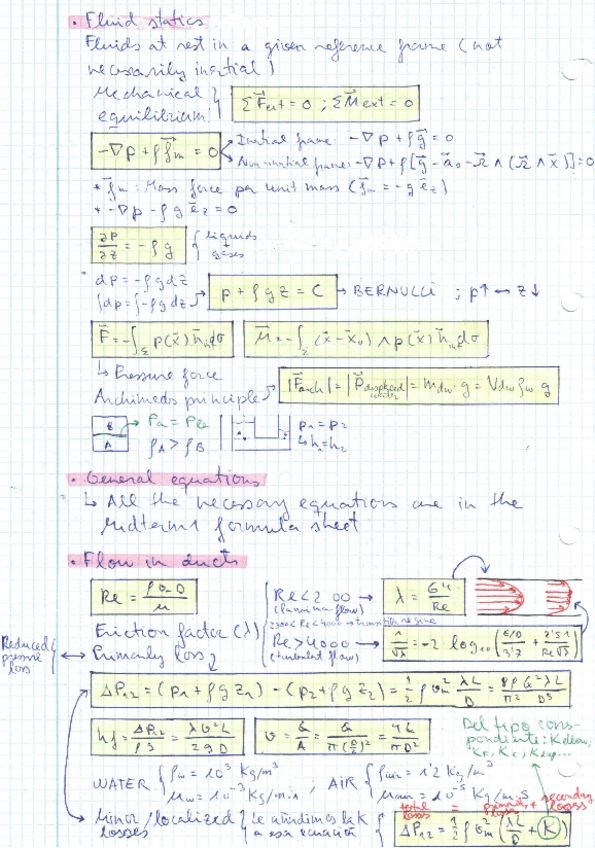 • Fluid statics
Fluids at rest in a given reference frame (not
necessarily inertial)
Mechanical
equilibrium:
Σ F⃗ext = 0 ; Σ M⃗ext = 0
-∇p + ρf⃗m = 0
Inertial frame: -∇p + ρg⃗ = 0
Non-inertial frame: -∇p + ρ[g⃗ - a⃗o - Ω⃗ ∧ (Ω⃗ ∧ x⃗)] = 0
* f⃗m: Mass force per unit mass (f⃗m = -g e⃗z)
* -∇p - ρg e⃗z = 0
∂P/∂z = -ρg
liquids
gases
dp = -ρgdz
∫dp = ∫-ρgdz
p + ρgz = C → BERNULLI ; p↑ ↔ z↓
F⃗ = -∫Σ p(x⃗) n⃗ dσ
M⃗ = -∫Σ (x⃗ - x⃗0) ∧ p(x⃗) n⃗ dσ
↳ Pressure force
Archimeds principle
|F⃗arch| = |P⃗displaced water| = mdw · g = Vdw ρw g
B
A
PA = PB
ρA > ρB
p1 = p2
↳ h1 = h2
• General equations
↳ All the necessary equations are in the
Midterm 1 formula sheet
• Flow in ducts
Re = ρυD/μ
Re < 2300 →
(laminar flow)
λ = 64/Re
2300 < Re < 4000 → transition regime
Friction factor (λ)
Re > 4000
(turbulent flow)
1/√λ = -2 · log10 (ε/D / 3'7 + 2'51 / Re√λ)
Reduced
pressure
loss
Primary loss
ΔP12 = (p1 + ρgz1) - (p2 + ρgz2) = 1/2 ρυm² λL/D = 8ρ/π² Q²λL/D⁵
hf = ΔP12/ρg = λυ²L/2gD
υ = Q/A = Q/π(D/2)² = 4Q/πD²
Del tipo corres-
pondiente: Kelbow,
KF, KC, Kexp...
WATER { ρw = 10³ Kg/m³
μw = 10⁻³ Kg/m·s
; AIR { ρair = 1'2 Kg/m³
μair = 10⁻⁵ Kg/m·s
total losses = Primary loss + secondary losses
Minor/localized
losses
Le añadimos la K
a esa ecuación
ΔP12 = 1/2 ρυm² (λL/D + K)